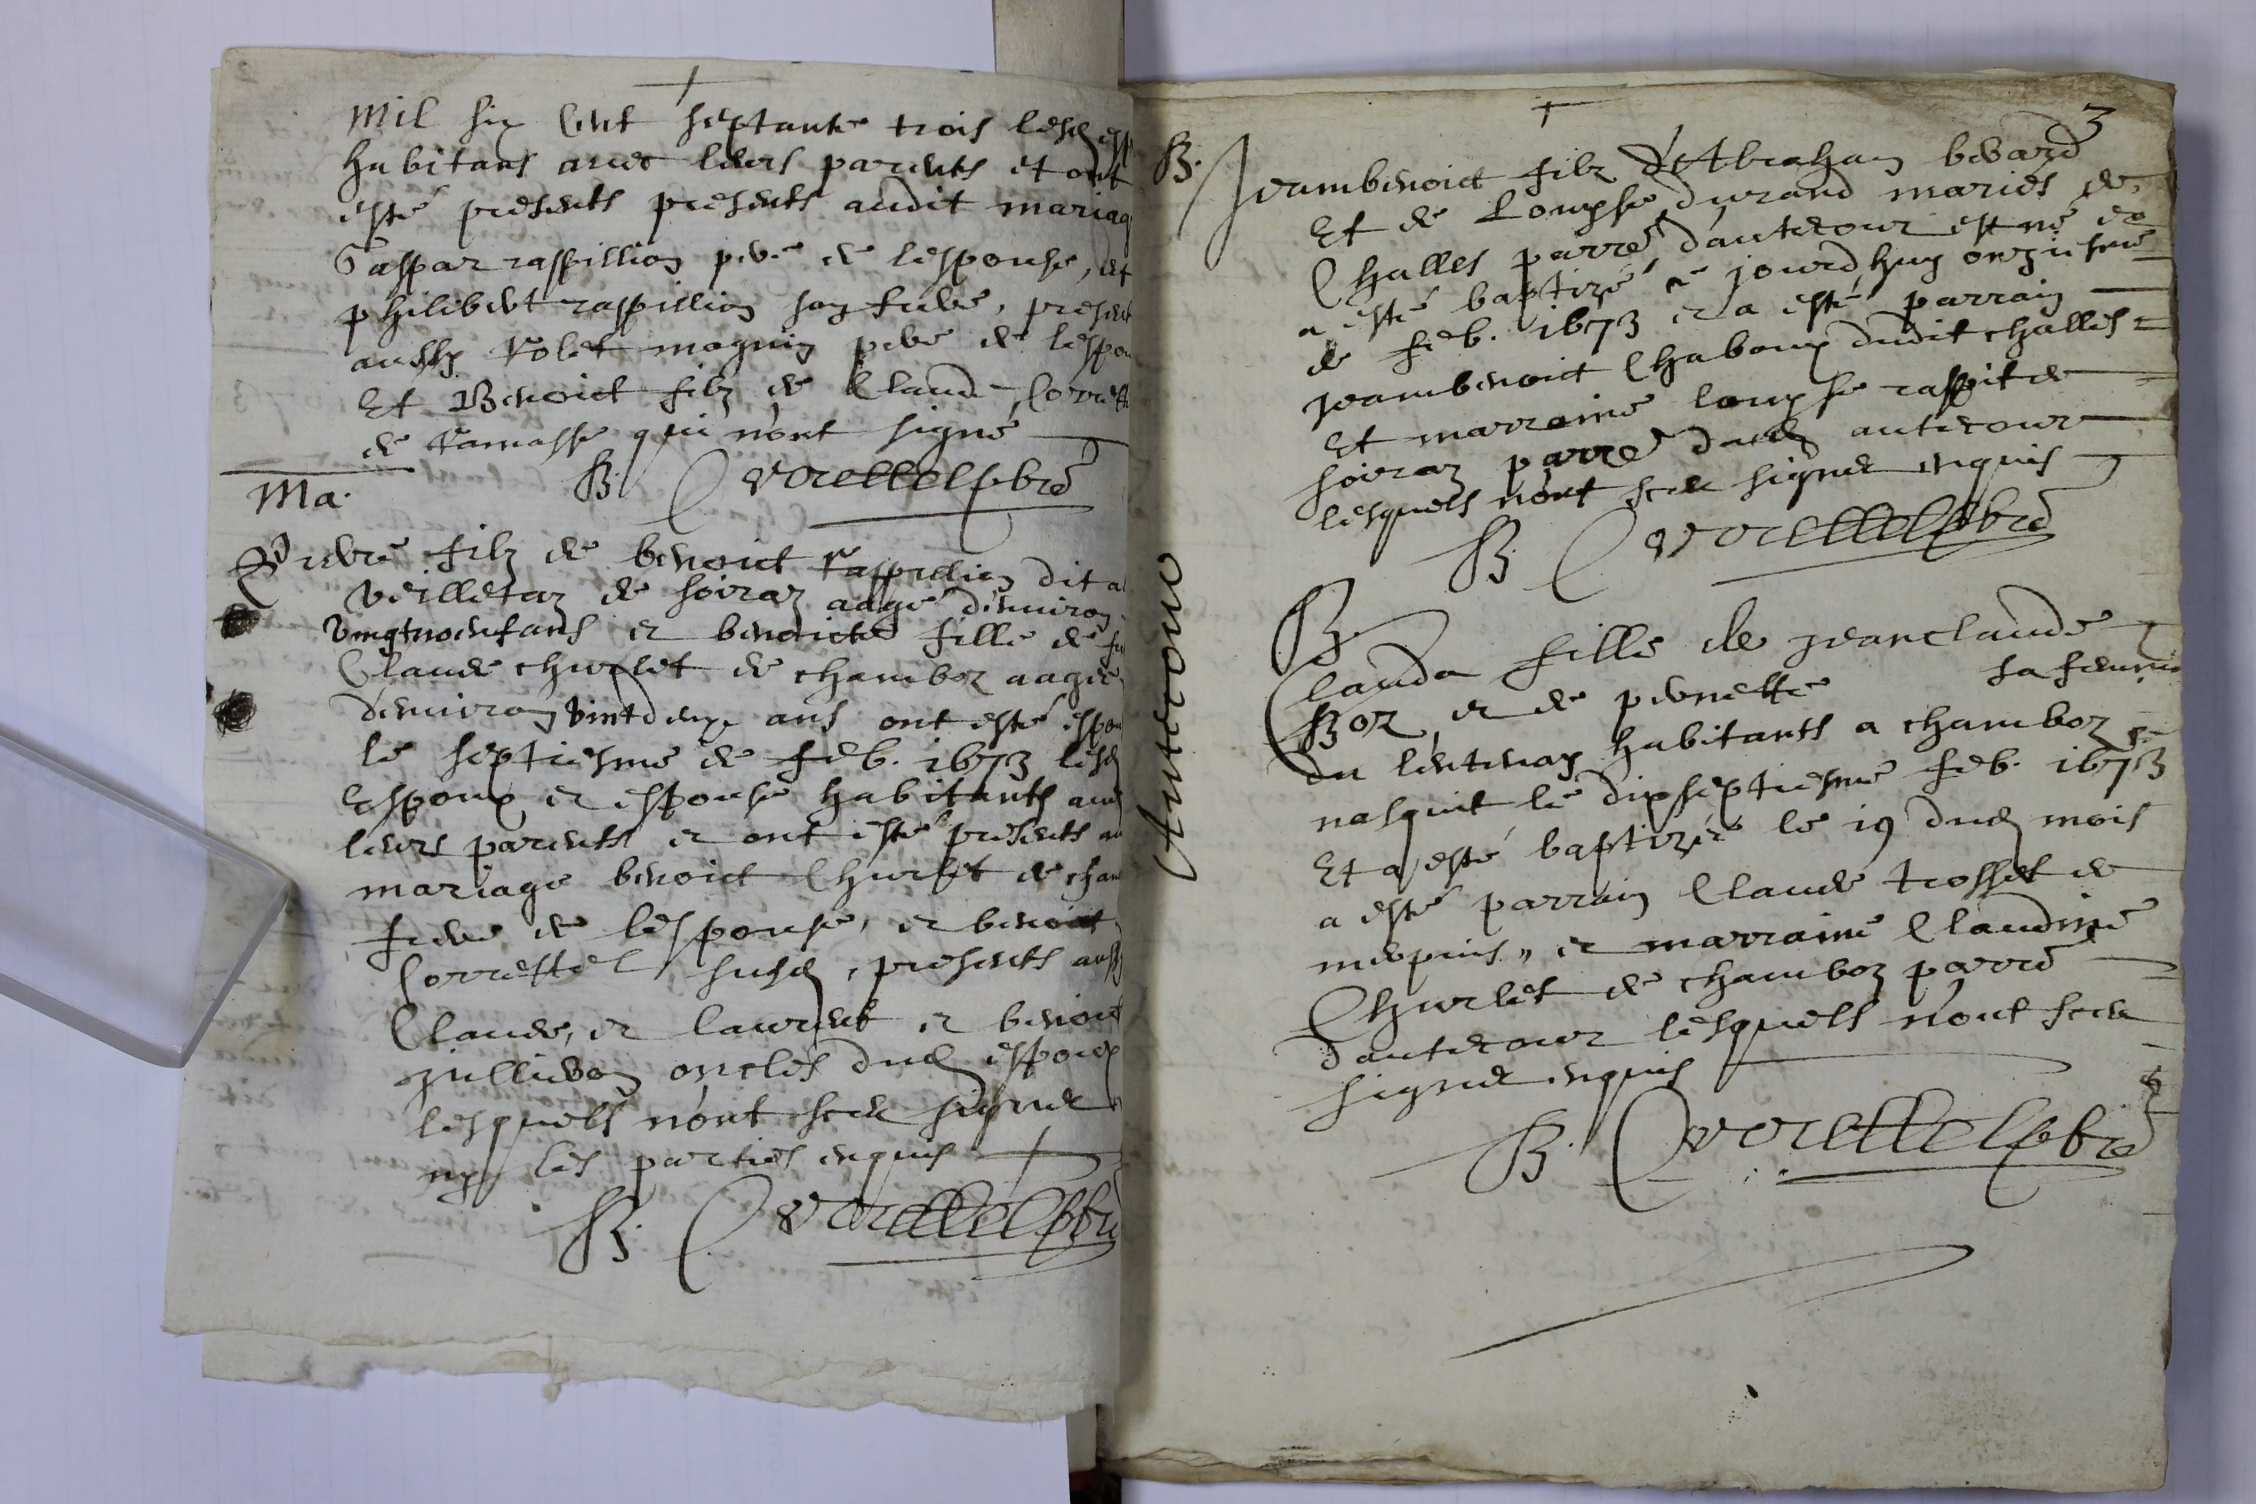 mil six cent septante trois lesd esp
habitans avec leurs parents et ont
esté presents presents audit mariag
Gaspar raspillion pere de lesponse, et
philibert raspillion son frere, present
aussy Rolet magnin pere de lespou
Et Benoict filz de Claude Corrett
de Ramasse qui nont signé
B. Correttel pbre
Ma.
Pierre filz de benoict Raspillion dit a
veilletaz de soiraz aagé denviron
vingtnoeufans et benoicte fille de fu
Claude churlet de chamboz aagee
denviron vintdeux ans ont esté espou
le septiesme de feb. 1673 lesd
Espoux et esponse habitants avec
leurs parents et ont esté presents au
mariage benoict Churlet de cham
frere de lesponse, et benoict
Correttel susd, presents aussy
Claude, et laurent et benoict
Jullieron oncles dud espoux
lesquels nont sceu signer
ny les parties enquis
B. Correttel pbre
3
B. Jeambenoict filz d'Abraham berard
Et de Louyse durand mariés de
Challes parre dantecour est né et
a esté baptizé ce jourdhuy onziesme
de feb. 1673 et a esté parrain
Jeambenoict Chaboux dudit challes
Et marraine louyse raspit de
soiraz parre dud antecour
lesquels nont sceu signer enquis
B. Correttel pbre
Antecour
B.
Clauda fille de Jeanclaude
Boz et de pernette sa femme
du lentenay habitants a chamboz
nasquit le dixseptiesme feb. 1673
Et a esté baptizée le 19 dud mois
a esté parrain Claude trosset de
mespuis, et marraine Claudine
Churlet de chamboz parre
dantecour lesquels nont sceu
signer enquis
B. Correttel pbre